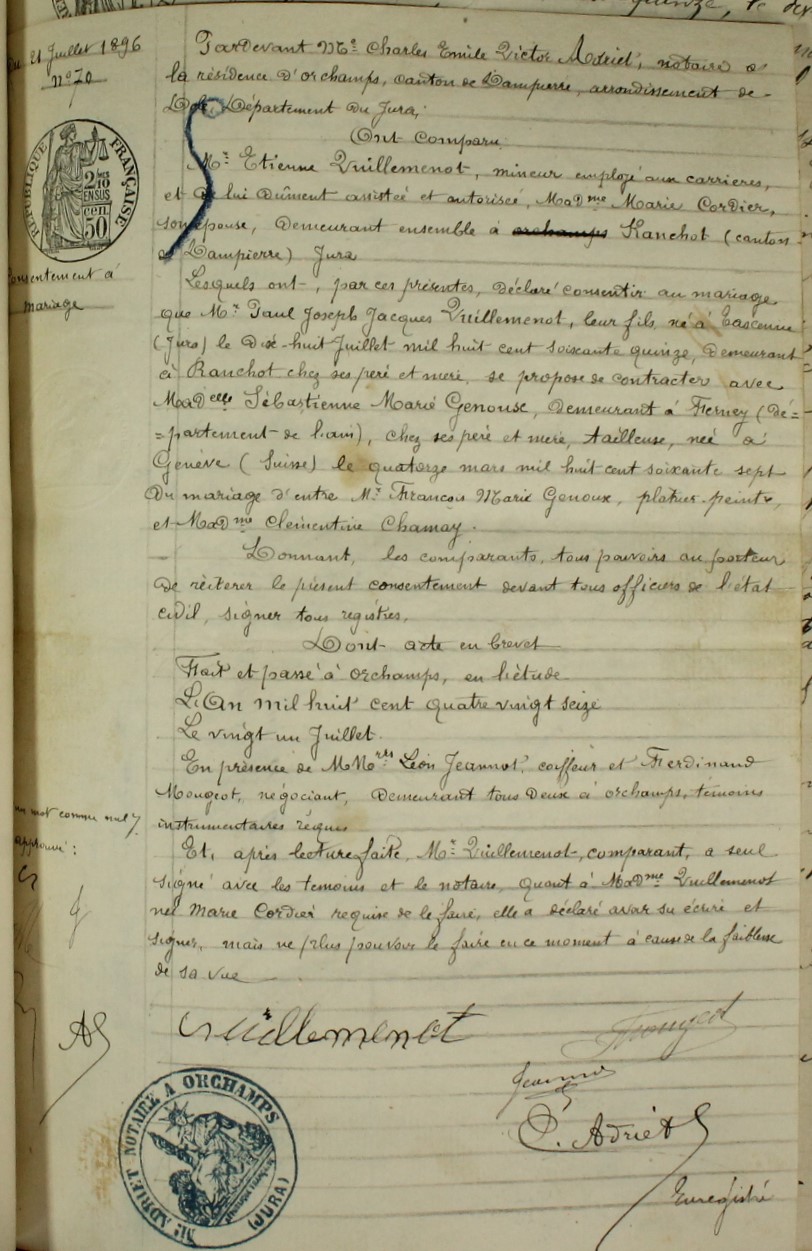 Du 21 Juillet 1896
N° 70
RÉPUBLIQUE FRANÇAISE
2/10 EN SUS
50 cen.
Consentement á
mariage
Pardevant Me Charles Emile Victor Adriet, notaire á
la résidence d'orchamps, canton de Dampierre, arrondissement de
Dole, Département du Jura,
Ont comparu
Mr Etienne Vuillemenot, mineur employé aux carrieres,
et de lui dûment assistée et autorisée, Madme Marie Cordier,
son épouse, demeurant ensemble á orchamps Ranchot (canton
de Dampierre) Jura
Lesquels ont, par ces présentes, déclaré consentir au mariage
que Mr Paul Joseph Jacques Vuillemenot, leur fils, né á
(Jura) le Dix-huit Juillet mil huit cent soixante quinze, demeurant
á Ranchot chez ses peré et meré, se propose de contracter avec
Madelle Sébastienne Marie Genoux, demeurant á Ferney (Dé=
=partement de l'ain), chez ses peré et meré, tailleuse, neé á
Genève (Suisse) le quatorze mars mil huit cent soixante sept
du mariage d'entre Mr François Marie Genoux, platrier-peintre,
et Madme Clementine Chamay.
Donnant, les comparants, tous pouvoirs au porteur
de réiterer le présent consentement devant tous officiers de l'état
civil, signer tous registres,
Dont acte en brevet
Fait et passé á orchamps, en l'étude
L'An mil huit cent quatre vingt seize
Le vingt un Juillet.
En présence de MMrs Léon Jeannot, coiffeur et Ferdinand
Mougeot, négociant, demeurant tous deux á orchamps, témoins
instrumentaires réquis
Et, aprés lecture faite, Mr Vuillemenot, comparant, a seul
signé avec les temoins et le notaire, quant á Madme Vuillemenot
neé Marie Cordier requise de le faire, elle a déclaré avoir su écrire et
signer, mais ne plus pouvoir le faire en ce moment á cause de la faiblesse
de sa vue
un mot comme nul
approuvé :
Vuillemenot
Mougeot
Jeannot
C. Adriet
Enregistré
Me ADRIET NOTAIRE A ORCHAMPS
(JURA)